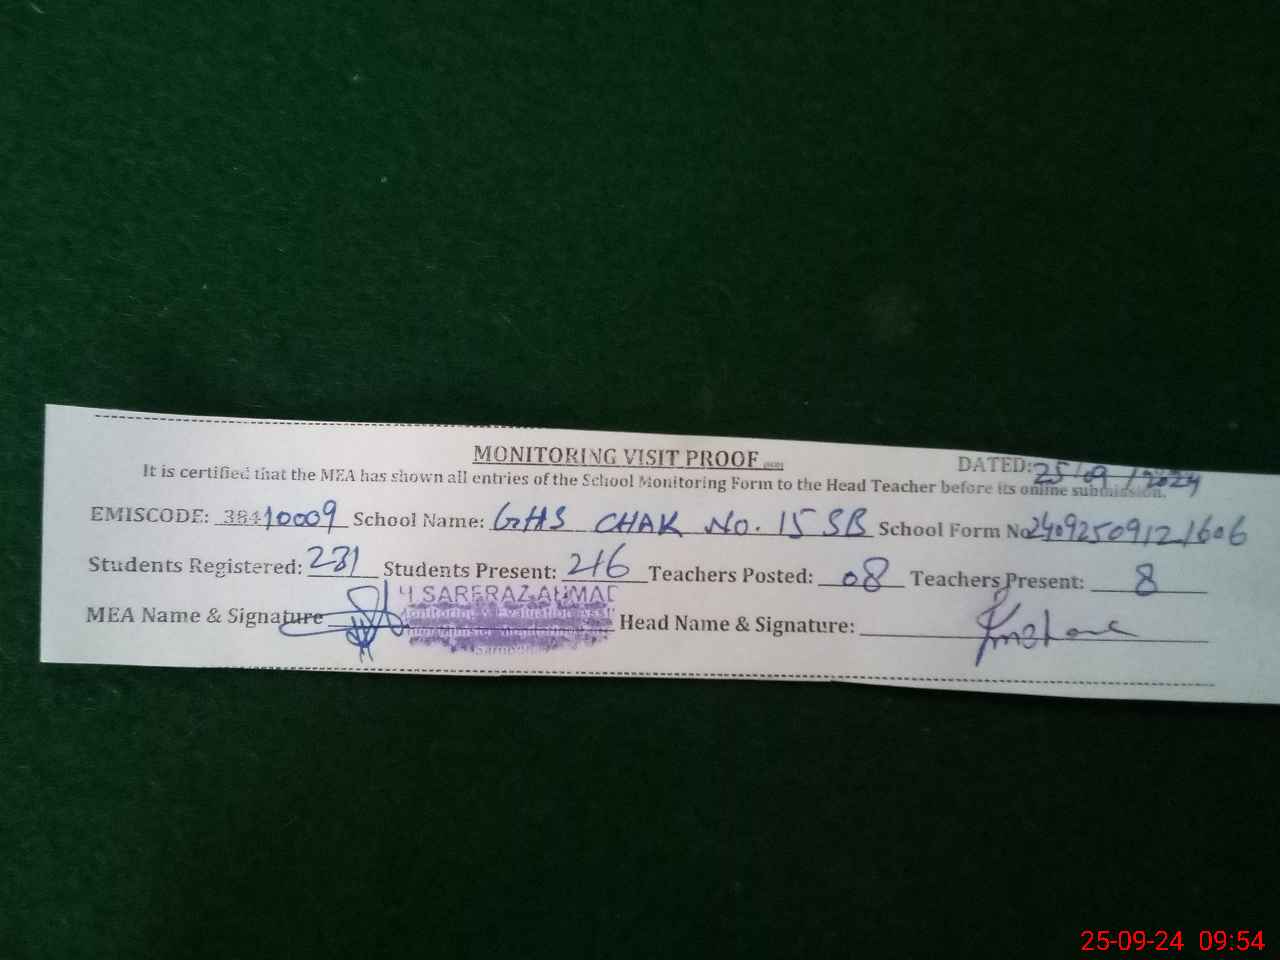 MONITORING VISIT PROOF
DATED: 25/09/2024
It is certified that the MEA has shown all entries of the School Monitoring Form to the Head Teacher before its online submission.
EMISCODE: 38410009 School Name: GHS CHAK No. 15 SB School Form No 24092509121606
Students Registered: 231 Students Present: 216 Teachers Posted: 08 Teachers Present: 8
MEA Name & Signature SARFRAZ AHMAD Head Name & Signature:
Monitoring & Evaluation
25-09-24 09:54